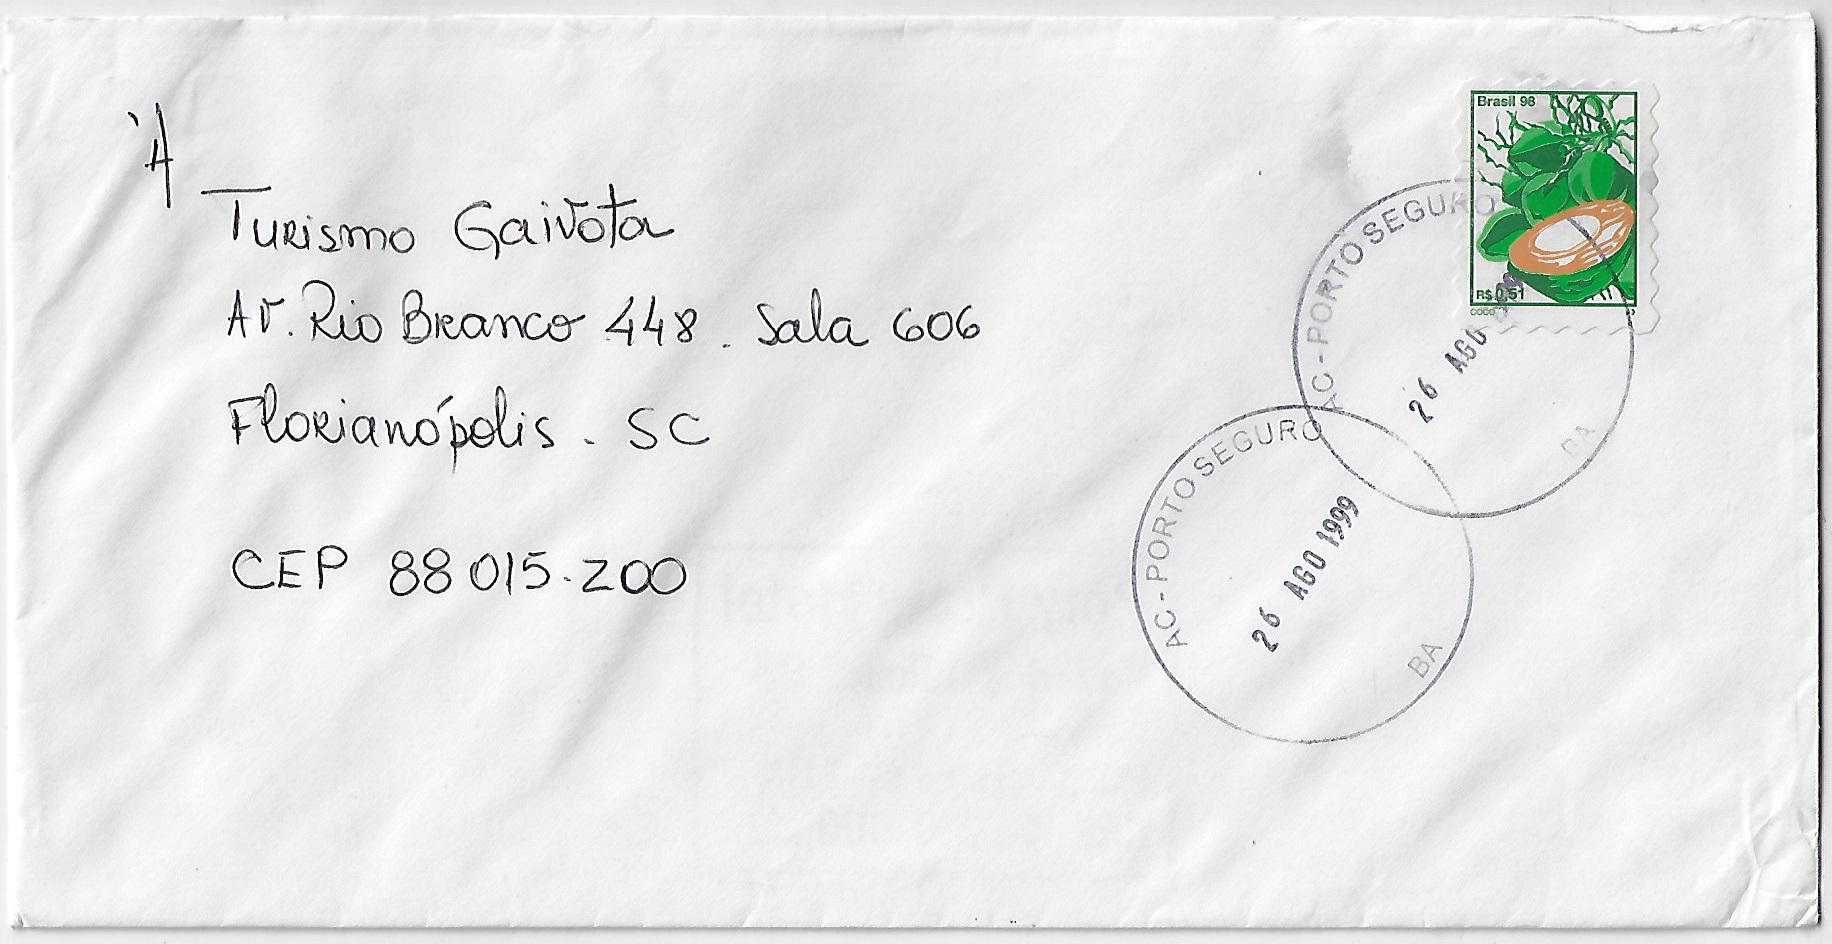 À
Turismo Gaivota
Av. Rio Branco 448. Sala 606
Florianópolis - SC
CEP 88015-200
Brasil 98
R$ 0,51
COCO
AC - PORTO SEGURO
26 AGO
BA
AC - PORTO SEGURO
26 AGO 1999
BA